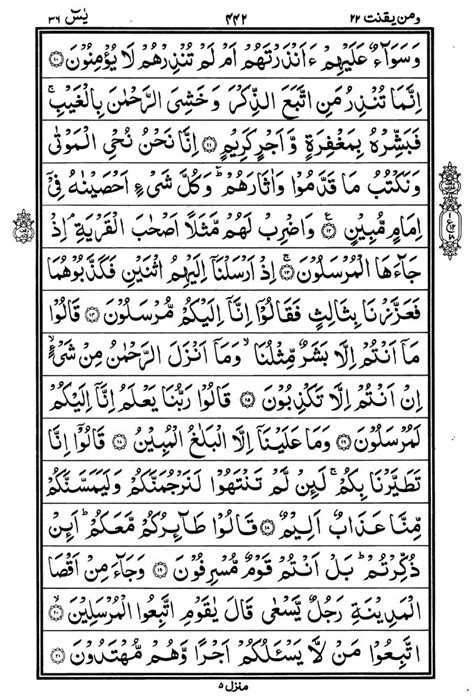 ومن یقنت ۲۲ ۴۴۲ یٰسٓ ۳۶
وَسَوَآءٌ عَلَیْهِمْ ءَاَنْذَرْتَهُمْ اَمْ لَمْ تُنْذِرْهُمْ لَا یُؤْمِنُوْنَ ۝۱۰
اِنَّمَا تُنْذِرُ مَنِ اتَّبَعَ الذِّكْرَ وَ خَشِیَ الرَّحْمٰنَ بِالْغَیْبِ ۚ
فَبَشِّرْهُ بِمَغْفِرَةٍ وَّ اَجْرٍ كَرِیْمٍ ۝۱۱ اِنَّا نَحْنُ نُحْیِ الْمَوْتٰی
وَنَكْتُبُ مَا قَدَّمُوْا وَاٰثَارَهُمْ ؕ وَكُلَّ شَیْءٍ اَحْصَیْنٰهُ فِیْۤ
اِمَامٍ مُّبِیْنٍ ۝۱۲ وَاضْرِبْ لَهُمْ مَّثَلًا اَصْحٰبَ الْقَرْیَةِ ۘ اِذْ
جَآءَهَا الْمُرْسَلُوْنَ ۝۱۳ اِذْ اَرْسَلْنَاۤ اِلَیْهِمُ اثْنَیْنِ فَكَذَّبُوْهُمَا
فَعَزَّزْنَا بِثَالِثٍ فَقَالُوْۤا اِنَّاۤ اِلَیْكُمْ مُّرْسَلُوْنَ ۝۱۴ قَالُوْا
مَاۤ اَنْتُمْ اِلَّا بَشَرٌ مِّثْلُنَا ۙ وَمَاۤ اَنْزَلَ الرَّحْمٰنُ مِنْ شَیْءٍ ۙ
اِنْ اَنْتُمْ اِلَّا تَكْذِبُوْنَ ۝۱۵ قَالُوْا رَبُّنَا یَعْلَمُ اِنَّاۤ اِلَیْكُمْ
لَمُرْسَلُوْنَ ۝۱۶ وَمَا عَلَیْنَاۤ اِلَّا الْبَلٰغُ الْمُبِیْنُ ۝۱۷ قَالُوْۤا اِنَّا
تَطَیَّرْنَا بِكُمْ ۚ لَىِٕنْ لَّمْ تَنْتَهُوْا لَنَرْجُمَنَّكُمْ وَلَیَمَسَّنَّكُمْ
مِّنَّا عَذَابٌ اَلِیْمٌ ۝۱۸ قَالُوْا طَآىِٕرُكُمْ مَّعَكُمْ ؕ اَىِٕنْ
ذُكِّرْتُمْ ؕ بَلْ اَنْتُمْ قَوْمٌ مُّسْرِفُوْنَ ۝۱۹ وَجَآءَ مِنْ اَقْصَا
الْمَدِیْنَةِ رَجُلٌ یَّسْعٰی قَالَ یٰقَوْمِ اتَّبِعُوا الْمُرْسَلِیْنَ ۝۲۰
اتَّبِعُوْا مَنْ لَّا یَسْـَٔلُكُمْ اَجْرًا وَّهُمْ مُّهْتَدُوْنَ ۝۲۱
منزل ۵